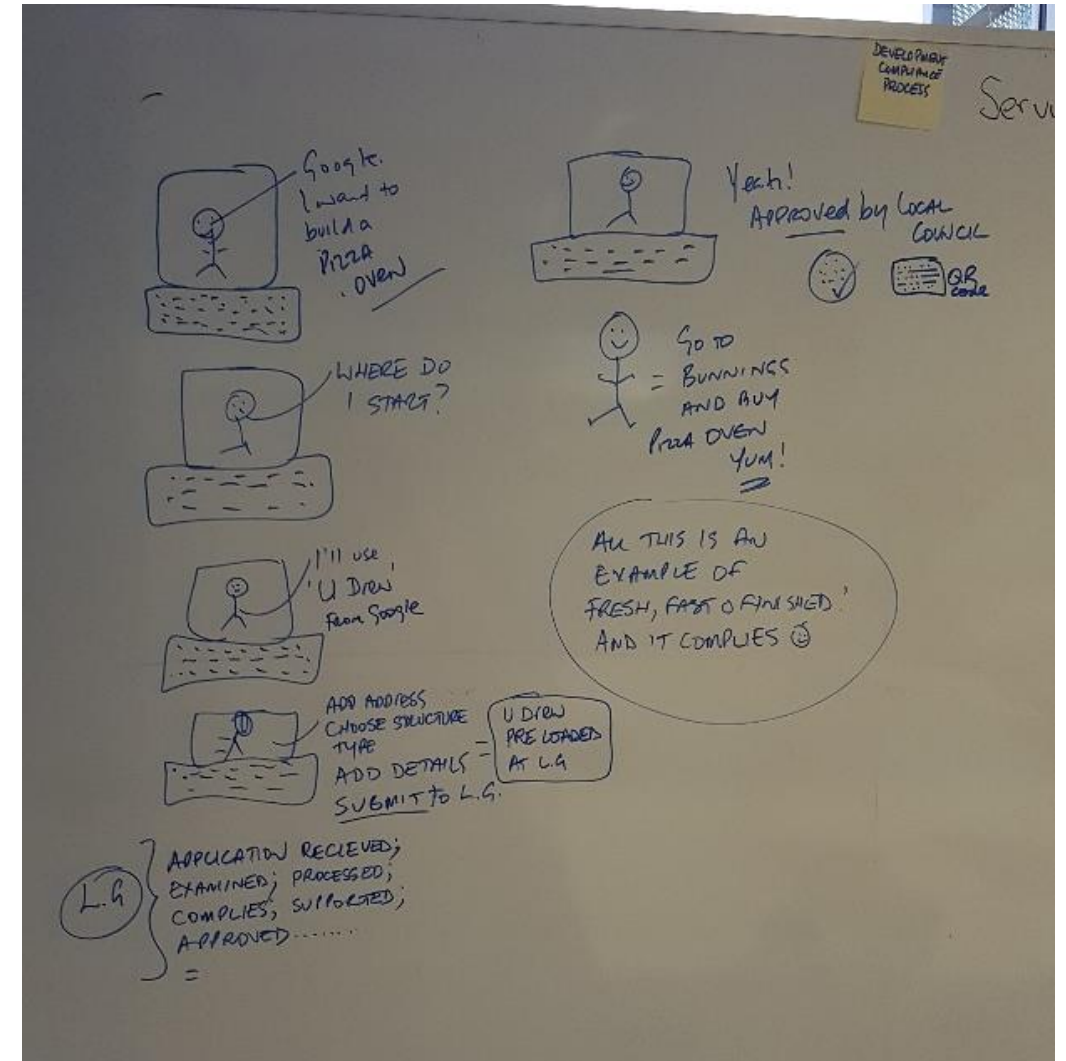 DEVELOPMENT
COMPLIANCE
PROCESS
Serv
Google.
I want to
build a
PIZZA
OVEN
WHERE DO
I START?
I'll use
'U Drew'
From Google
ADD ADDRESS
CHOOSE STRUCTURE
TYPE
ADD DETAILS =
SUBMIT to L.G.
U DREW
PRE LOADED
AT L.G
L.G
APPLICATION RECIEVED;
EXAMINED; PROCESSED;
COMPLIES; SUPPORTED;
APPROVED........
=
Yeah!
APPROVED by LOCAL
COUNCIL
QR
code
= GO TO
BUNNINGS
AND BUY
PIZZA OVEN
YUM!
ALL THIS IS AN
EXAMPLE OF
FRESH, FAST & FINISHED!
AND IT COMPLIES